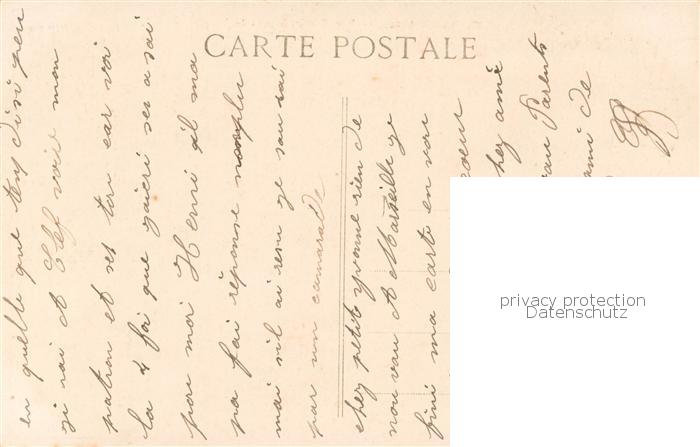 CARTE POSTALE
en quelle que temp disi peu
ji rai A voir mon
patron et ses ton car voi
la 4 foi que j'aicri ses a sai
pour moi Henri il ma
pa fai réponse nomplu
mai sil ai reru je sau rai
par mon camarade
cher petit yvonne rien de
nou vau A Marseille je
fini ma carte en vou
coeur
chez ame
vau Parents
ami de
privacy protection
Datenschutz